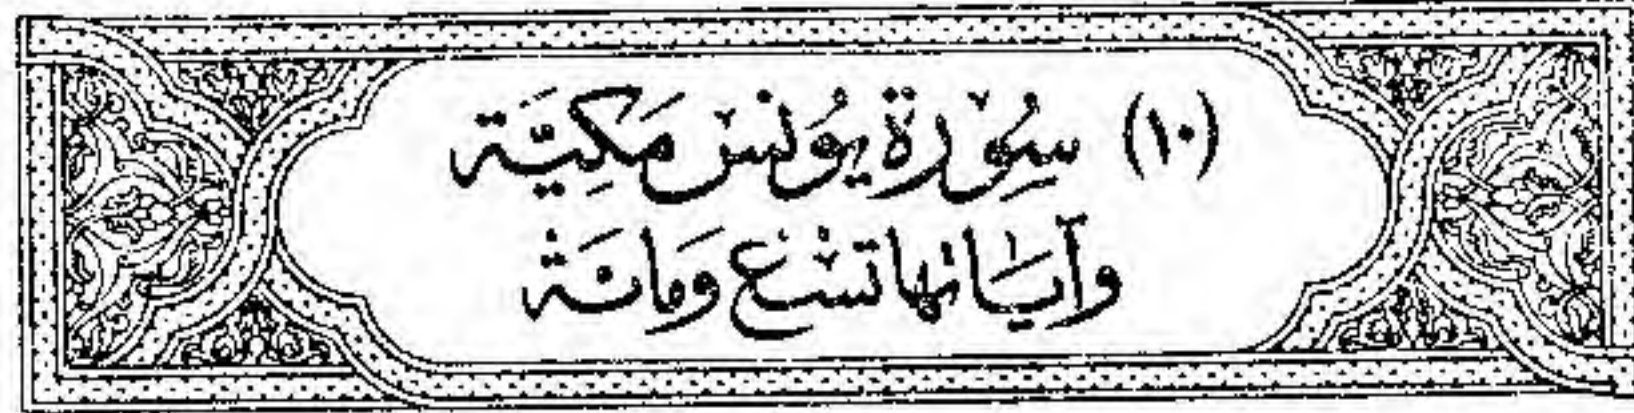 (١٠) سُورَة يُونس مَكِيَّة
وآيَاتها تسْع وَمائَة